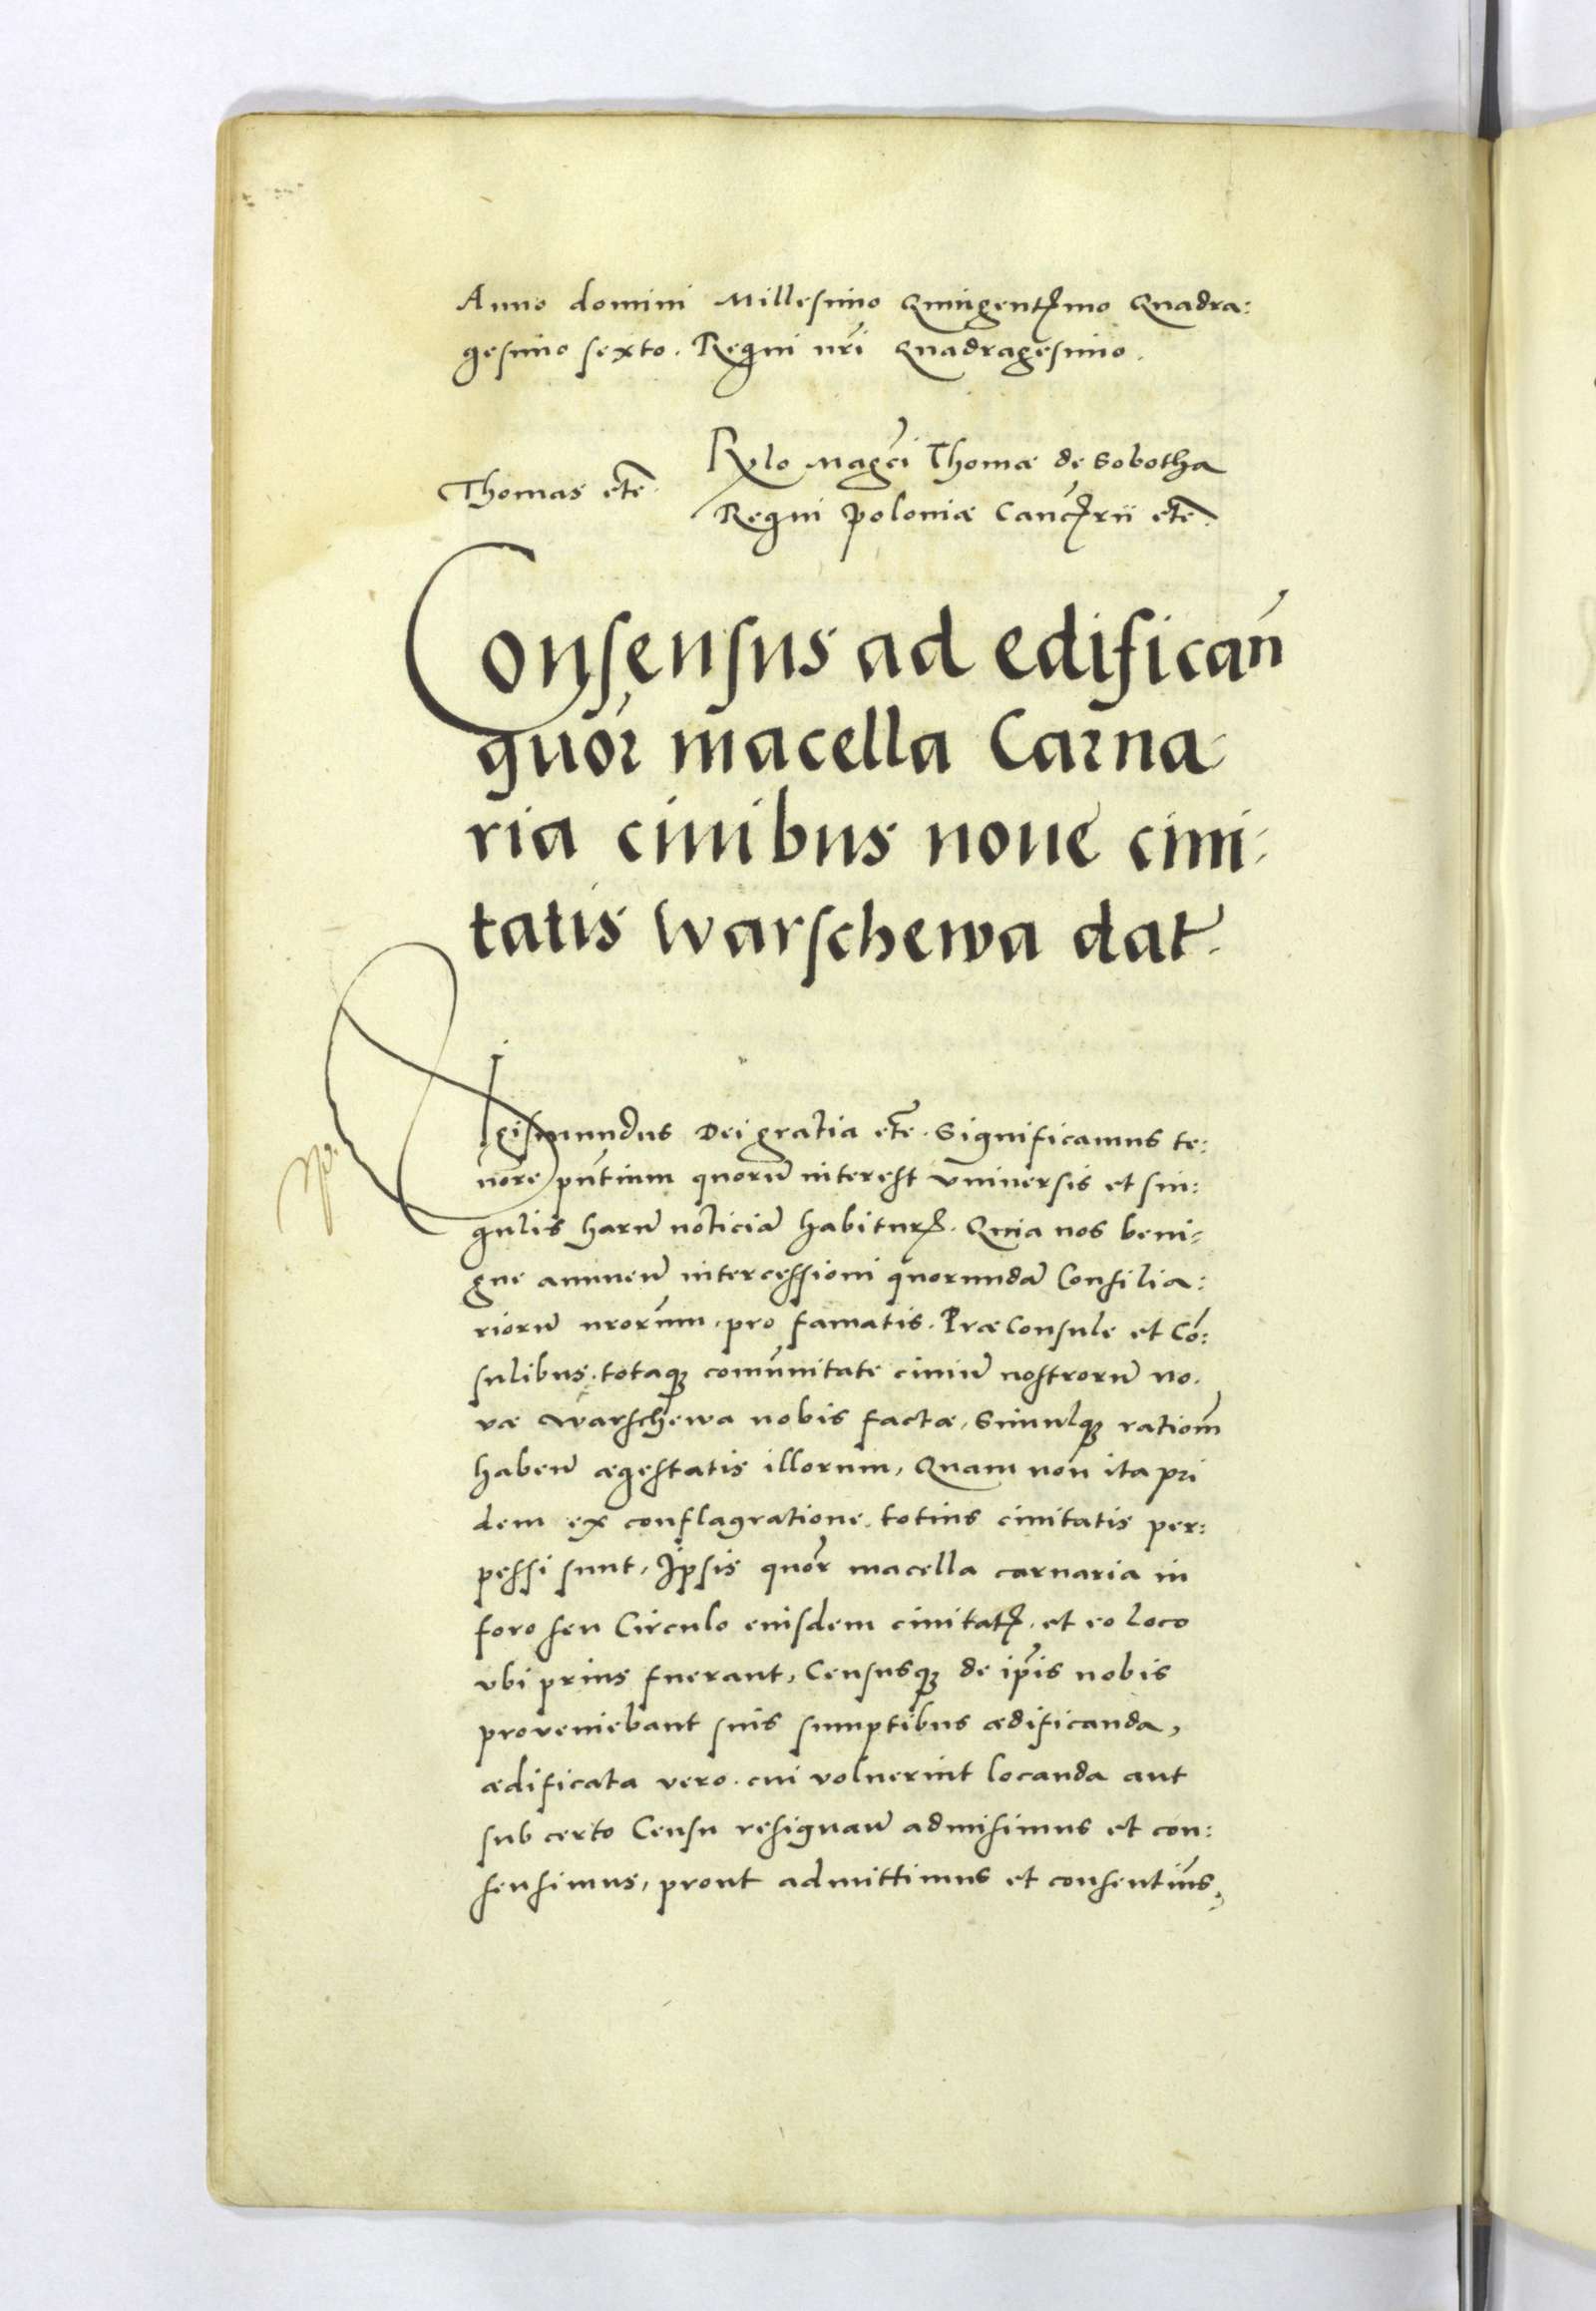 Anno domini Millesimo Quingentꝭmo Quadra:
gesimo sexto. Regni nr̃i Quadragesimo.
Rel̃o Magc̃i Thomæ de Sobotha
Thomas etc̃.
Regni Poloniæ Canc̃ꝭrii etc̃.
Consensus ad edifican̄
quor̃ macella Carna-
ria ciuibus noue ciui-
tatis Warschewa dat̃.
Sigismundus Dei gratia etc̃. Significamus te:
nore pn̄tium quorū interest vniuersis et sin:
gulis harū noticiā habiturꝭ. Quia nos beni-
gne annuen̄ intercessioni quorundā Consilia:
riorū nrorum̄. pro famatis. Præconsule et Cō:
sulibus. totaqꝫ comūnitate ciuiū nostrorū no.
væ Warschewa nobis factæ, Simulqꝫ rationem̄
haben̄ ægestatis illorum, Quam non ita pri
dem ex conflagratione. totius ciuitatis per:
pessi sunt, Ipsis quor̃ macella carnaria in
foro seu Circulo eiusdem ciuitatꝭ. et eo loco
vbi prius fuerant, Censusqꝫ de ip̃is nobis
proveniebant suis sumptibus ædificanda,
ædificata vero. cui voluerint locanda aut
sub certo Censu resignan̄ admisimus et con:
sensimus, prout admittimus et consentim̄s,